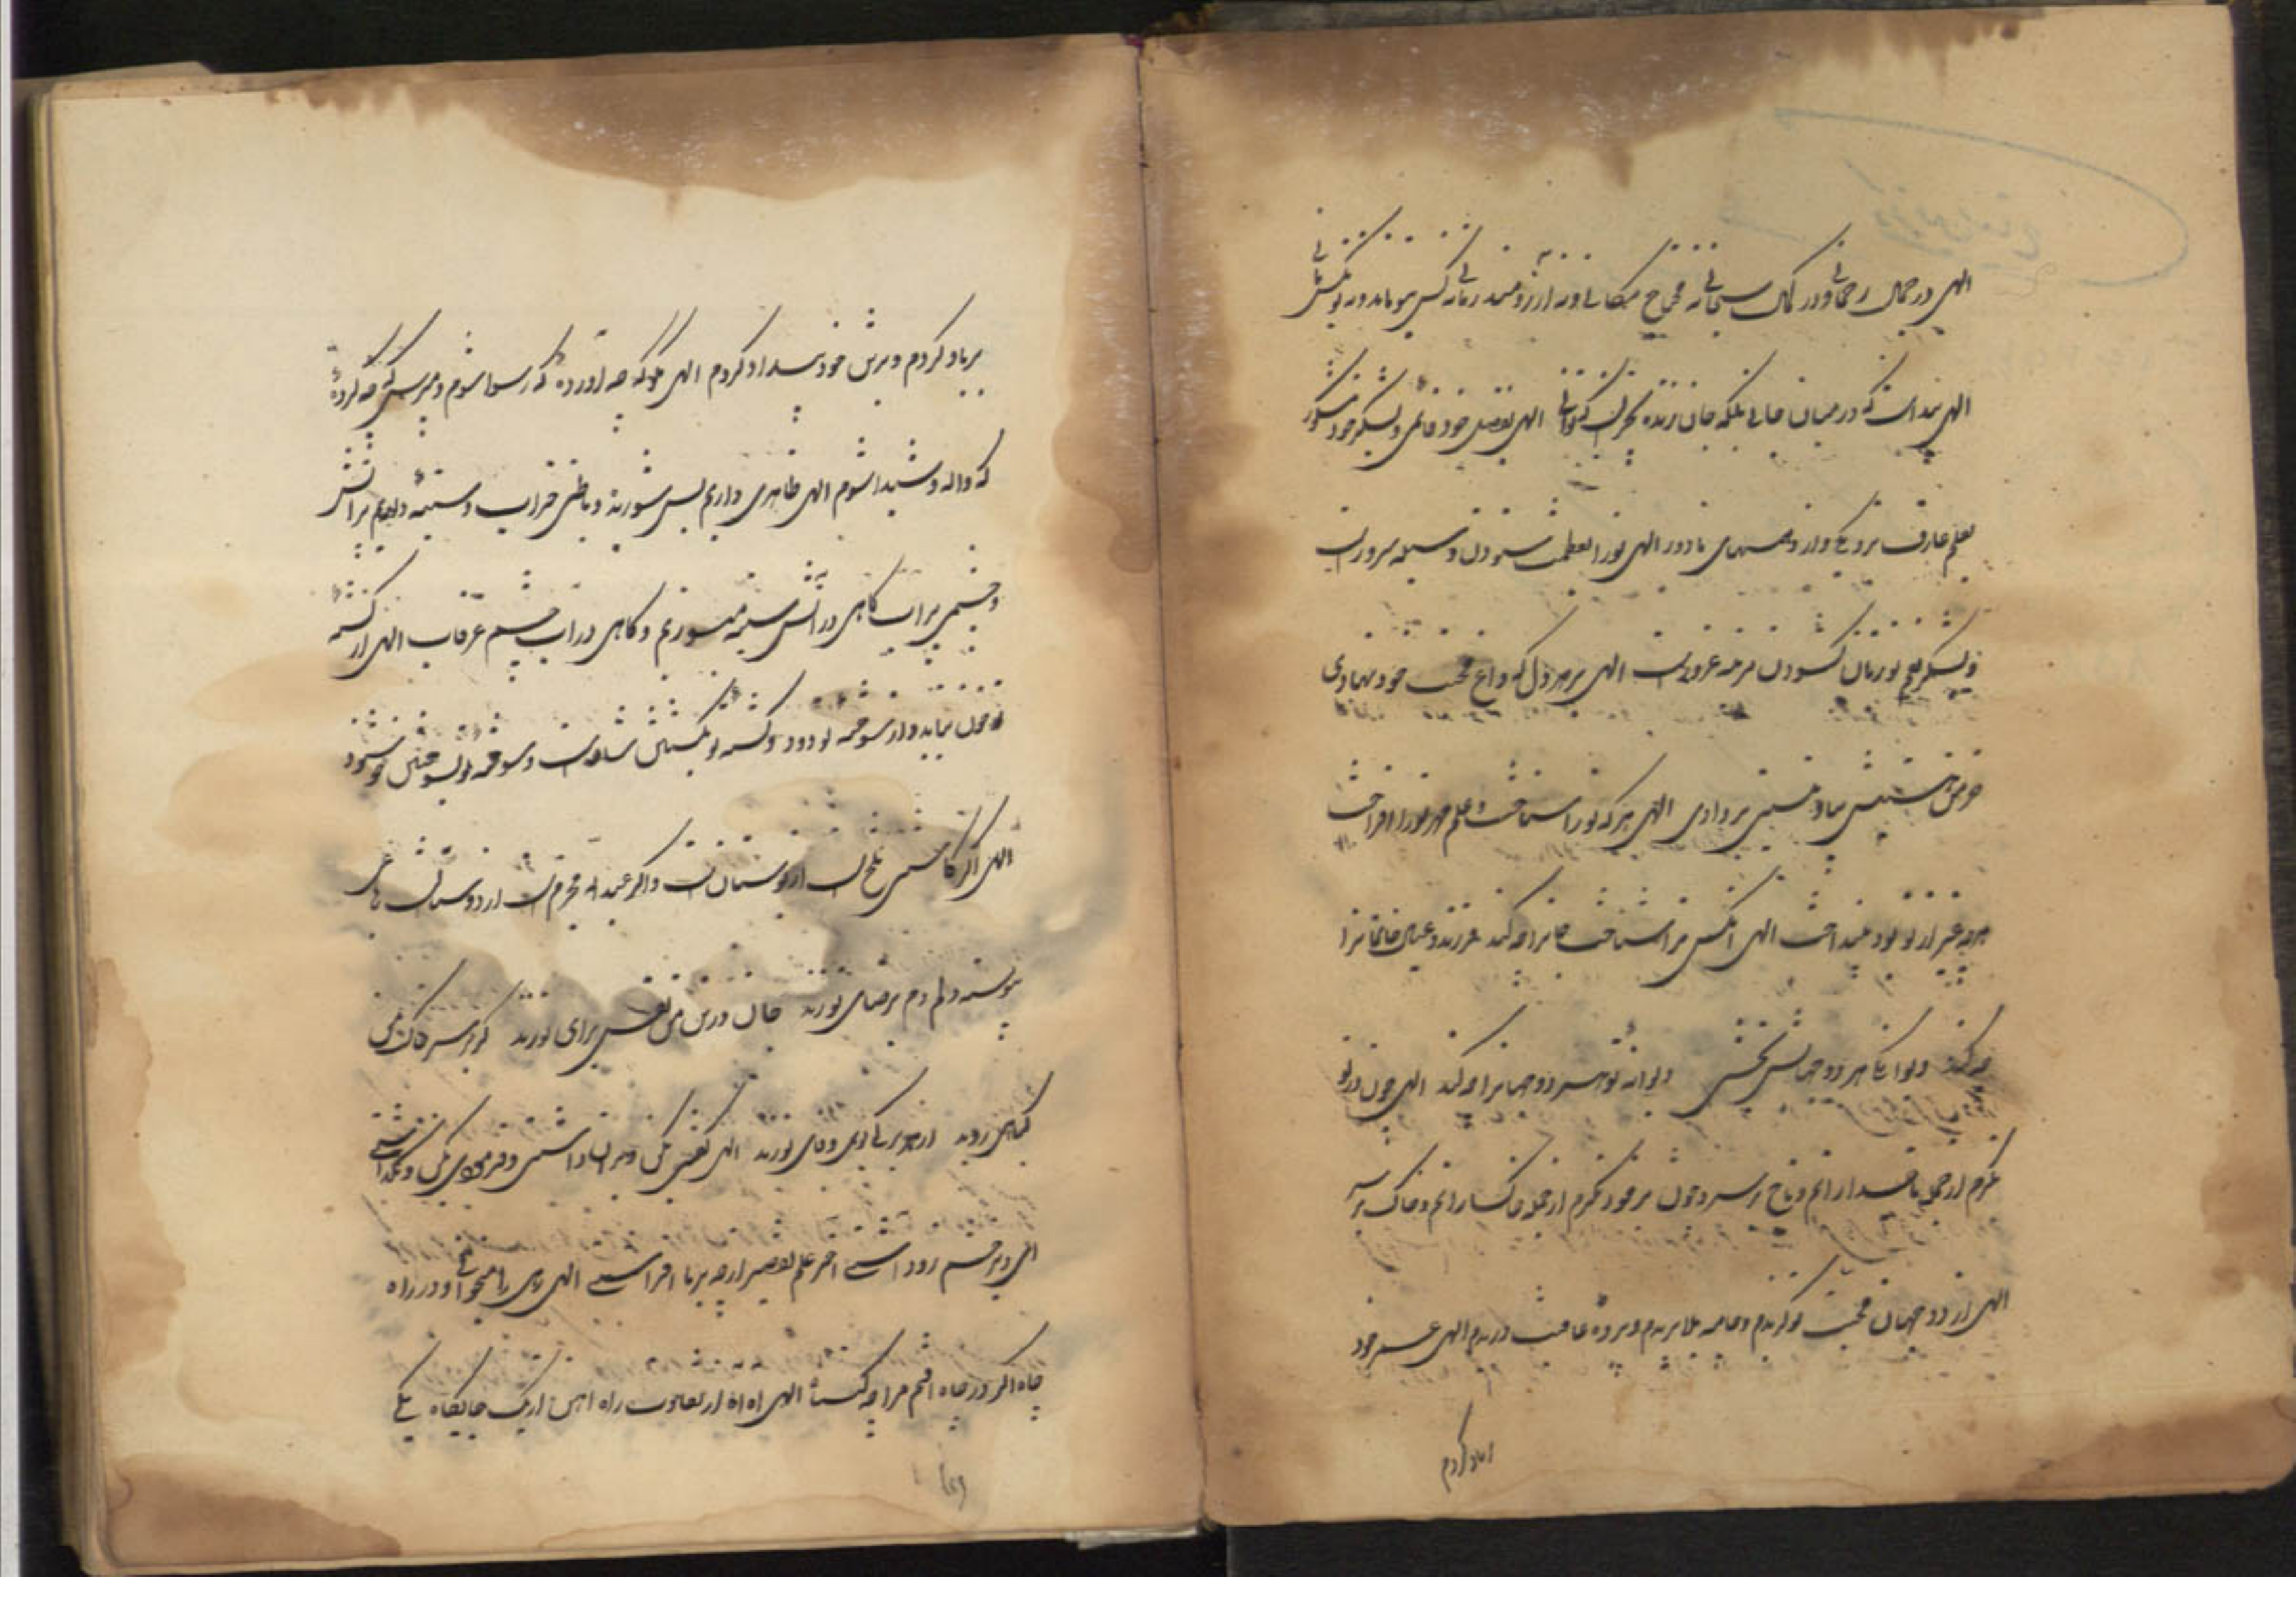 الهی در جمال رحمانی و در کمال سبحانی نه محتاج مکانی و نه آرزومند زمانی نه کس بتو ماند و نه تو بکس مانی
الهی پیداست که در میان جانی بلکه جان زنده بچیزیست که تو آنی الهی بفضل خود قائمی و بشکر خود مشکور
بعلم عارف نزدیکی و از وهمهای ما دور الهی تو را بعظمت ستودن وسیله سرور است
و بشکر تو زبان گشودن غرور است الهی بر هر دل که داغ محبت خود نهادی
خرمن هستیش بباد نیستی بر دادی الهی هر که تو را شناخت و علم مهر تو را افراخت
هر چه غیر از تو بود بینداخت الهی آنکس تو را شناخت جانرا چه کند فرزند و عیال و خانمانرا
چه کند دیوانه کنی هر دو جهانش بخشی دیوانه تو هر دو جهانرا چه کند الهی چون در تو
نگرم از جمله تاجدارانم و تاج بر سر و چون بر خود نگرم از جمله خاکسارانم و خاک بر سر
الهی از دو جهان محبت تو گزیدم و جامه بلا بریدم و پرده عافیت دریدم الهی عمر خود
آباد کردم
برباد کردم و بر تن خود بیداد کردم الهی مگو که چه آورده که رسوا شوم و مپرس که چه کرده
که واله و شیدا شوم الهی ظاهری داریم بس شوریده و باطنی خراب و سینه داریم پر آتش
و چشمی پر آب گاهی در آتش سینه میسوزیم و گاهی در آب چشم غرقاب الهی از کشته
تو خون نیاید و از سوخته تو دود کشته تو بکشتن شادست و سوخته تو بسوختن خوشنود
الهی اگر کاسنی تلخ است از بوستان است و اگر عبدالله مجرم است از دوستان است رباعی
پیوسته دلم دم برضای تو زند جان در تن من نفس برای تو زند گر بر سر خاک من
گیاهی روید از هر برگی بوی وفای تو زند الهی گفتی مکن و بر آن داشتی و فرمودی بکن و نگذاشتی
الهی در راه
چاه اگر در چاه افتم مرا چه گناه الهی آه آه از تفاوت راه آهن از یک جایگاه یکی